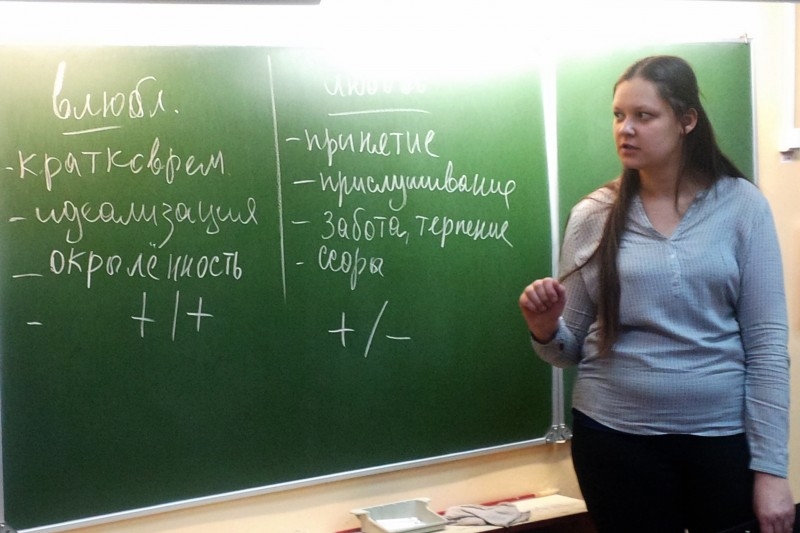 влюбл.
- кратковрем
- идеализация
- окрылённость
- +/+
любовь
- принятие
- прислушивание
- забота, терпение
- ссоры
+/-